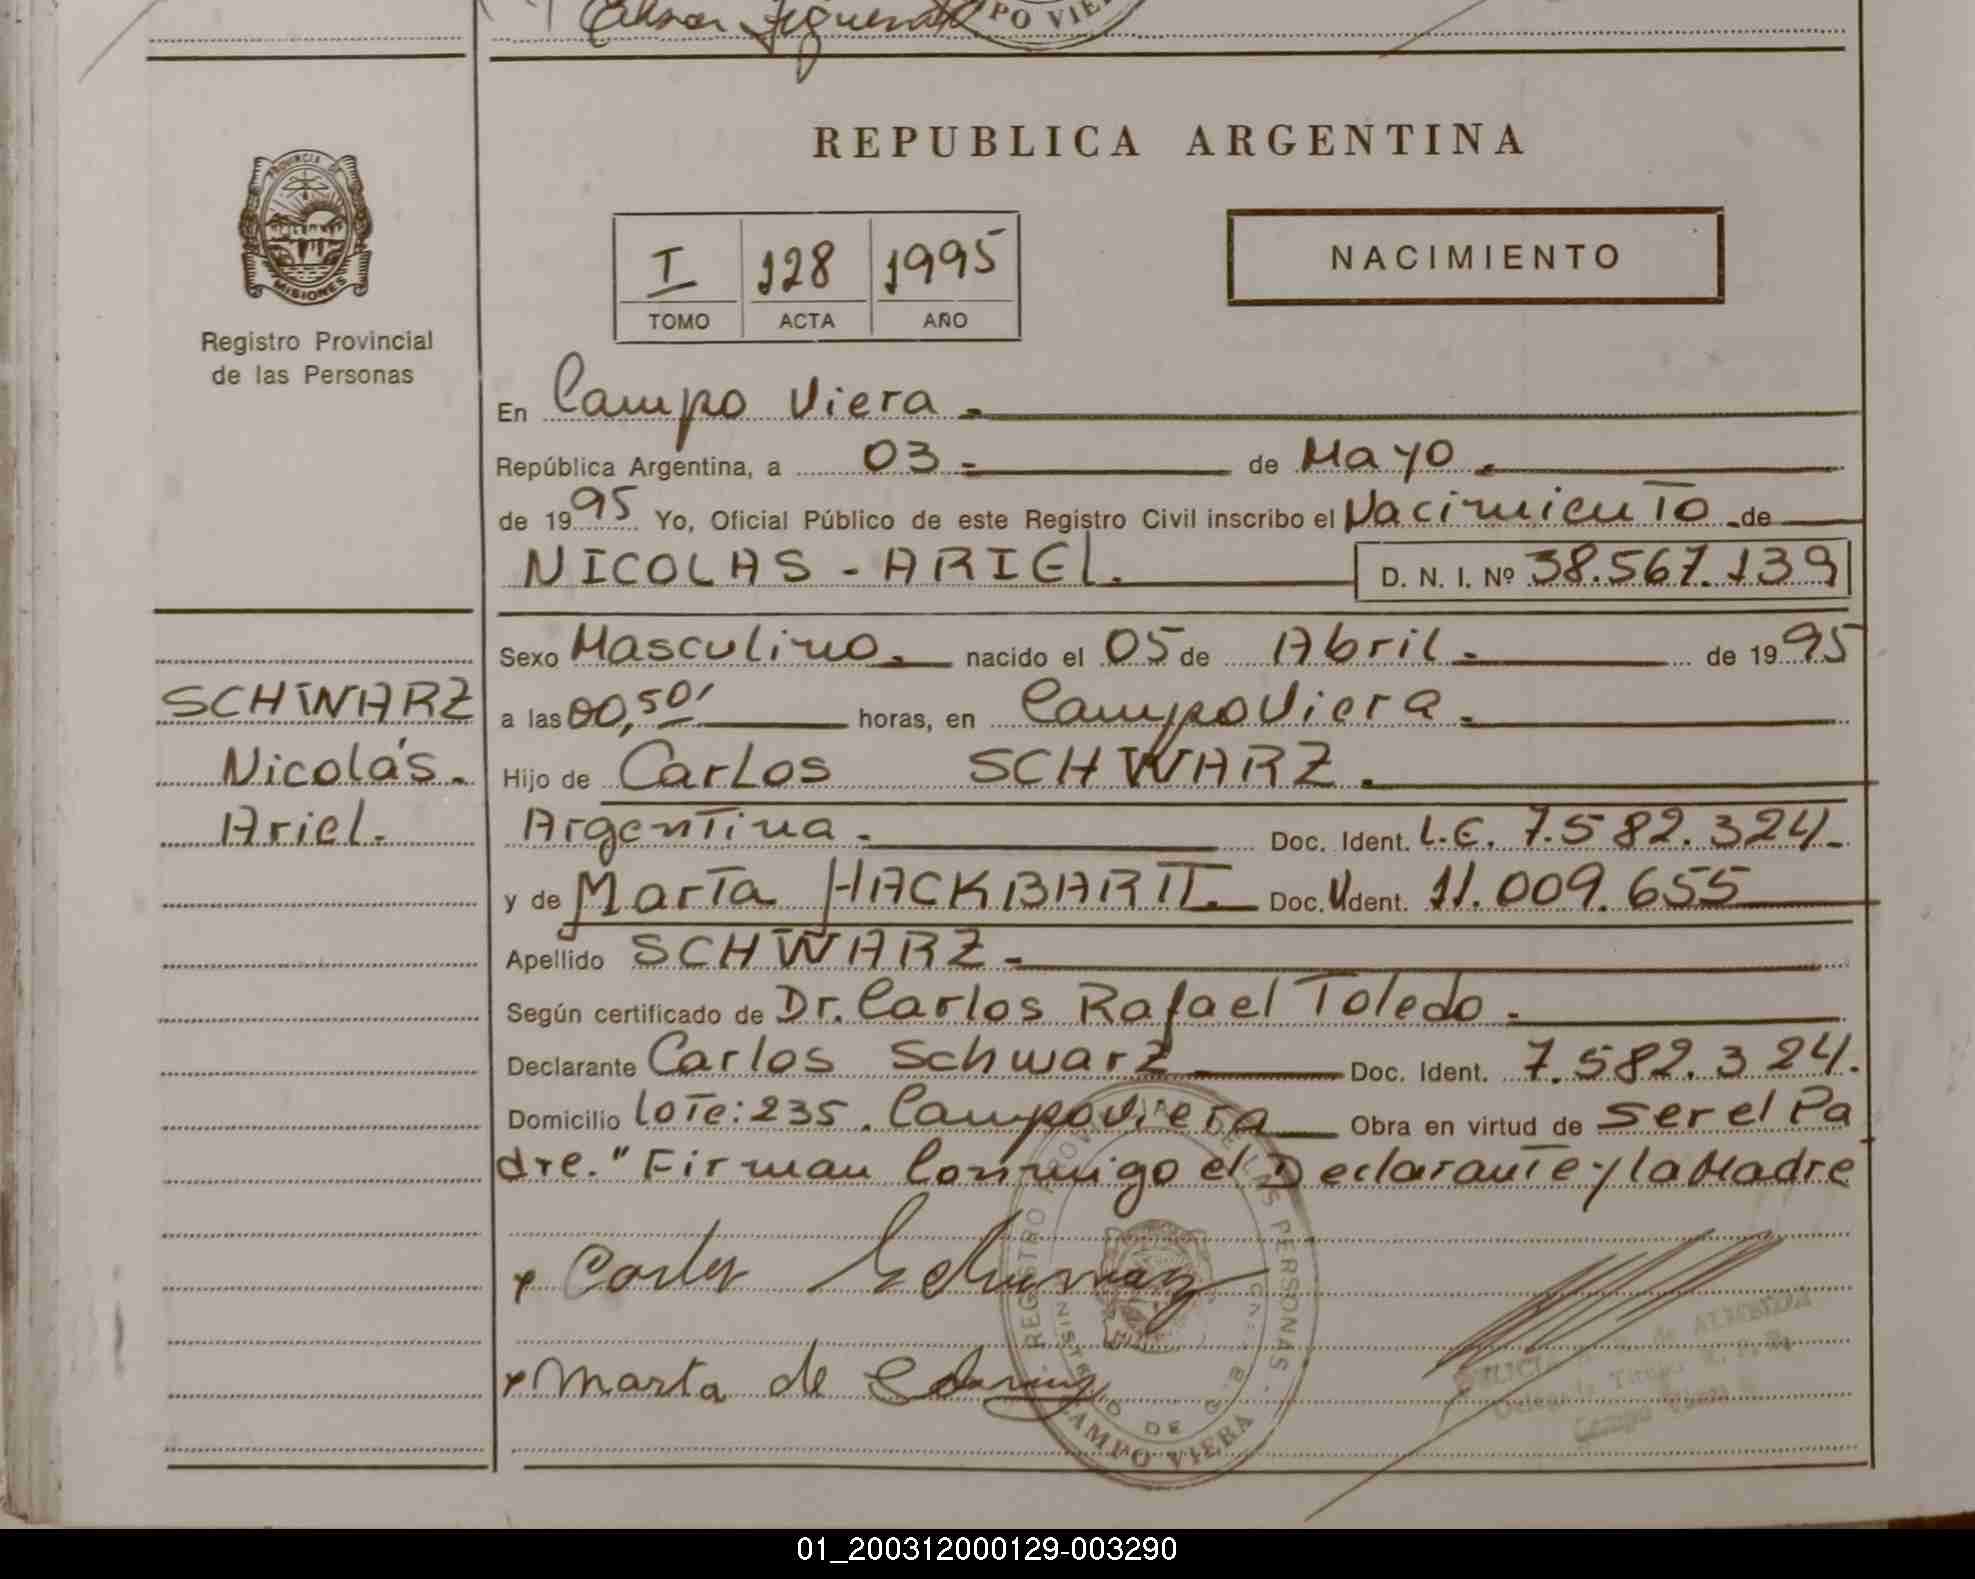 PO VIE
PROVINCIA DE
MISIONES
Registro Provincial
de las Personas
REPUBLICA ARGENTINA
I 128 1995
TOMO ACTA AÑO
NACIMIENTO
En Campo Viera.
República Argentina, a 03 de Mayo.
de 1995 Yo, Oficial Público de este Registro Civil inscribo el Nacimiento de
NICOLAS - ARIEL. D. N. I. Nº 38.567.139
Sexo Masculino. nacido el 05 de Abril. de 1995
SCHWARZ
Nicolás.
Ariel.
a las 00,50' horas, en Campo Viera.
Hijo de Carlos SCHWARZ.
Argentina. Doc. Ident. L.E. 7.582.324.
y de Marta HACKBARTT. Doc. Ident. 11.009.655
Apellido SCHWARZ.
Según certificado de Dr. Carlos Rafael Toledo.
Declarante Carlos Schwarz Doc. Ident. 7.582.324.
Domicilio Lote: 235. Campo Viera Obra en virtud de ser el Pa
dre." Firman Conmigo el Declarante y la Madre
Carlos Schwarz
Marta de
REGISTRO PROVINCIAL DE LAS PERSONAS
CAMPO VIERA
de ALMEIDA
Campo Viera
01_200312000129-003290